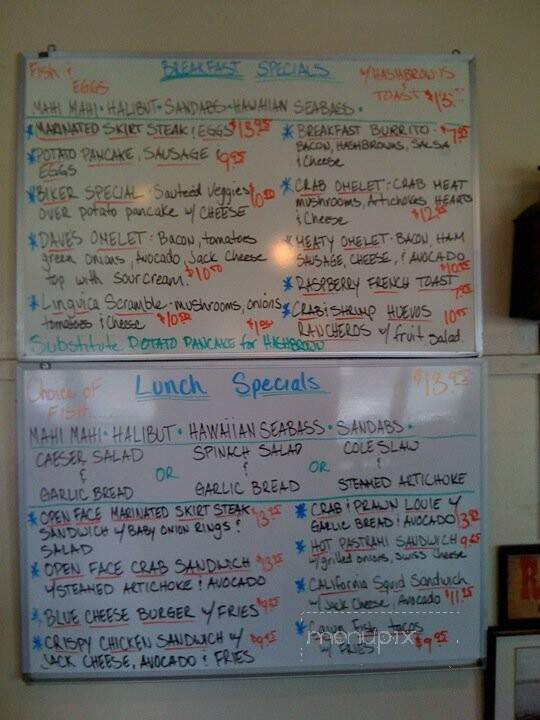 Fish & EGGS
BREAKFAST SPECIALS
w/HASHBROWNS & TOAST
MAHI MAHI · HALIBUT · SANDABS · HAWAIIAN SEABASS ·
* MARINATED SKIRT STEAK & EGGS $13.95
* POTATO PANCAKE, SAUSAGE &
EGGS 9.95
* BIKER SPECIAL · Sauteéd Veggies
OVER potato pancake w/ CHEESE
* DAVE'S OMELET · Bacon, tomatoes
green onions, Avocado, Jack Cheese
top with sour cream.
* Linguica Scramble · mushrooms, onions
tomatoes & cheese
* BREAKFAST BURRITO ·
BACON, HASHBROWNS, SALSA
& Cheese
* CRAB OMELET · CRAB MEAT
mushrooms, Artichokes HEARTS
& Cheese
* MEATY OMELET · BACON, HAM
SAUSAGE, CHEESE, & AVOCADO
* RASPBERRY FRENCH TOAST
* CRAB & SHRIMP HUEVOS
RANCHEROS w/ fruit salad
Substitute POTATO PANCAKE for HASHBROWN
Choice of
FISH
Lunch Specials
$13.95
MAHI MAHI · HALIBUT · HAWAIIAN SEABASS · SANDABS ·
CAESER SALAD
&
GARLIC BREAD
OR
SPINACH SALAD
&
GARLIC BREAD
OR
COLE SLAW
&
STEAMED ARTICHOKE
* OPEN FACE MARINATED SKIRT STEAK
SANDWICH w/ BABY ONION RINGS &
SALAD
* OPEN FACE CRAB SANDWICH
w/ STEAMED ARTICHOKE & AVOCADO
* BLUE CHEESE BURGER w/ FRIES $9.95
* CRISPY CHICKEN SANDWICH w/ $9.95
JACK CHEESE, AVOCADO & FRIES
* CRAB & PRAWN LOUIE w/
GARLIC BREAD & AVOCADO
* HOT PASTRAMI SANDWICH
w/ grilled onions, swiss cheese
* California Squid Sandwich
w/ Jack Cheese, Avocado $11.95
* Cajun Fish tacos
w/ FRIES $9.95
menupix